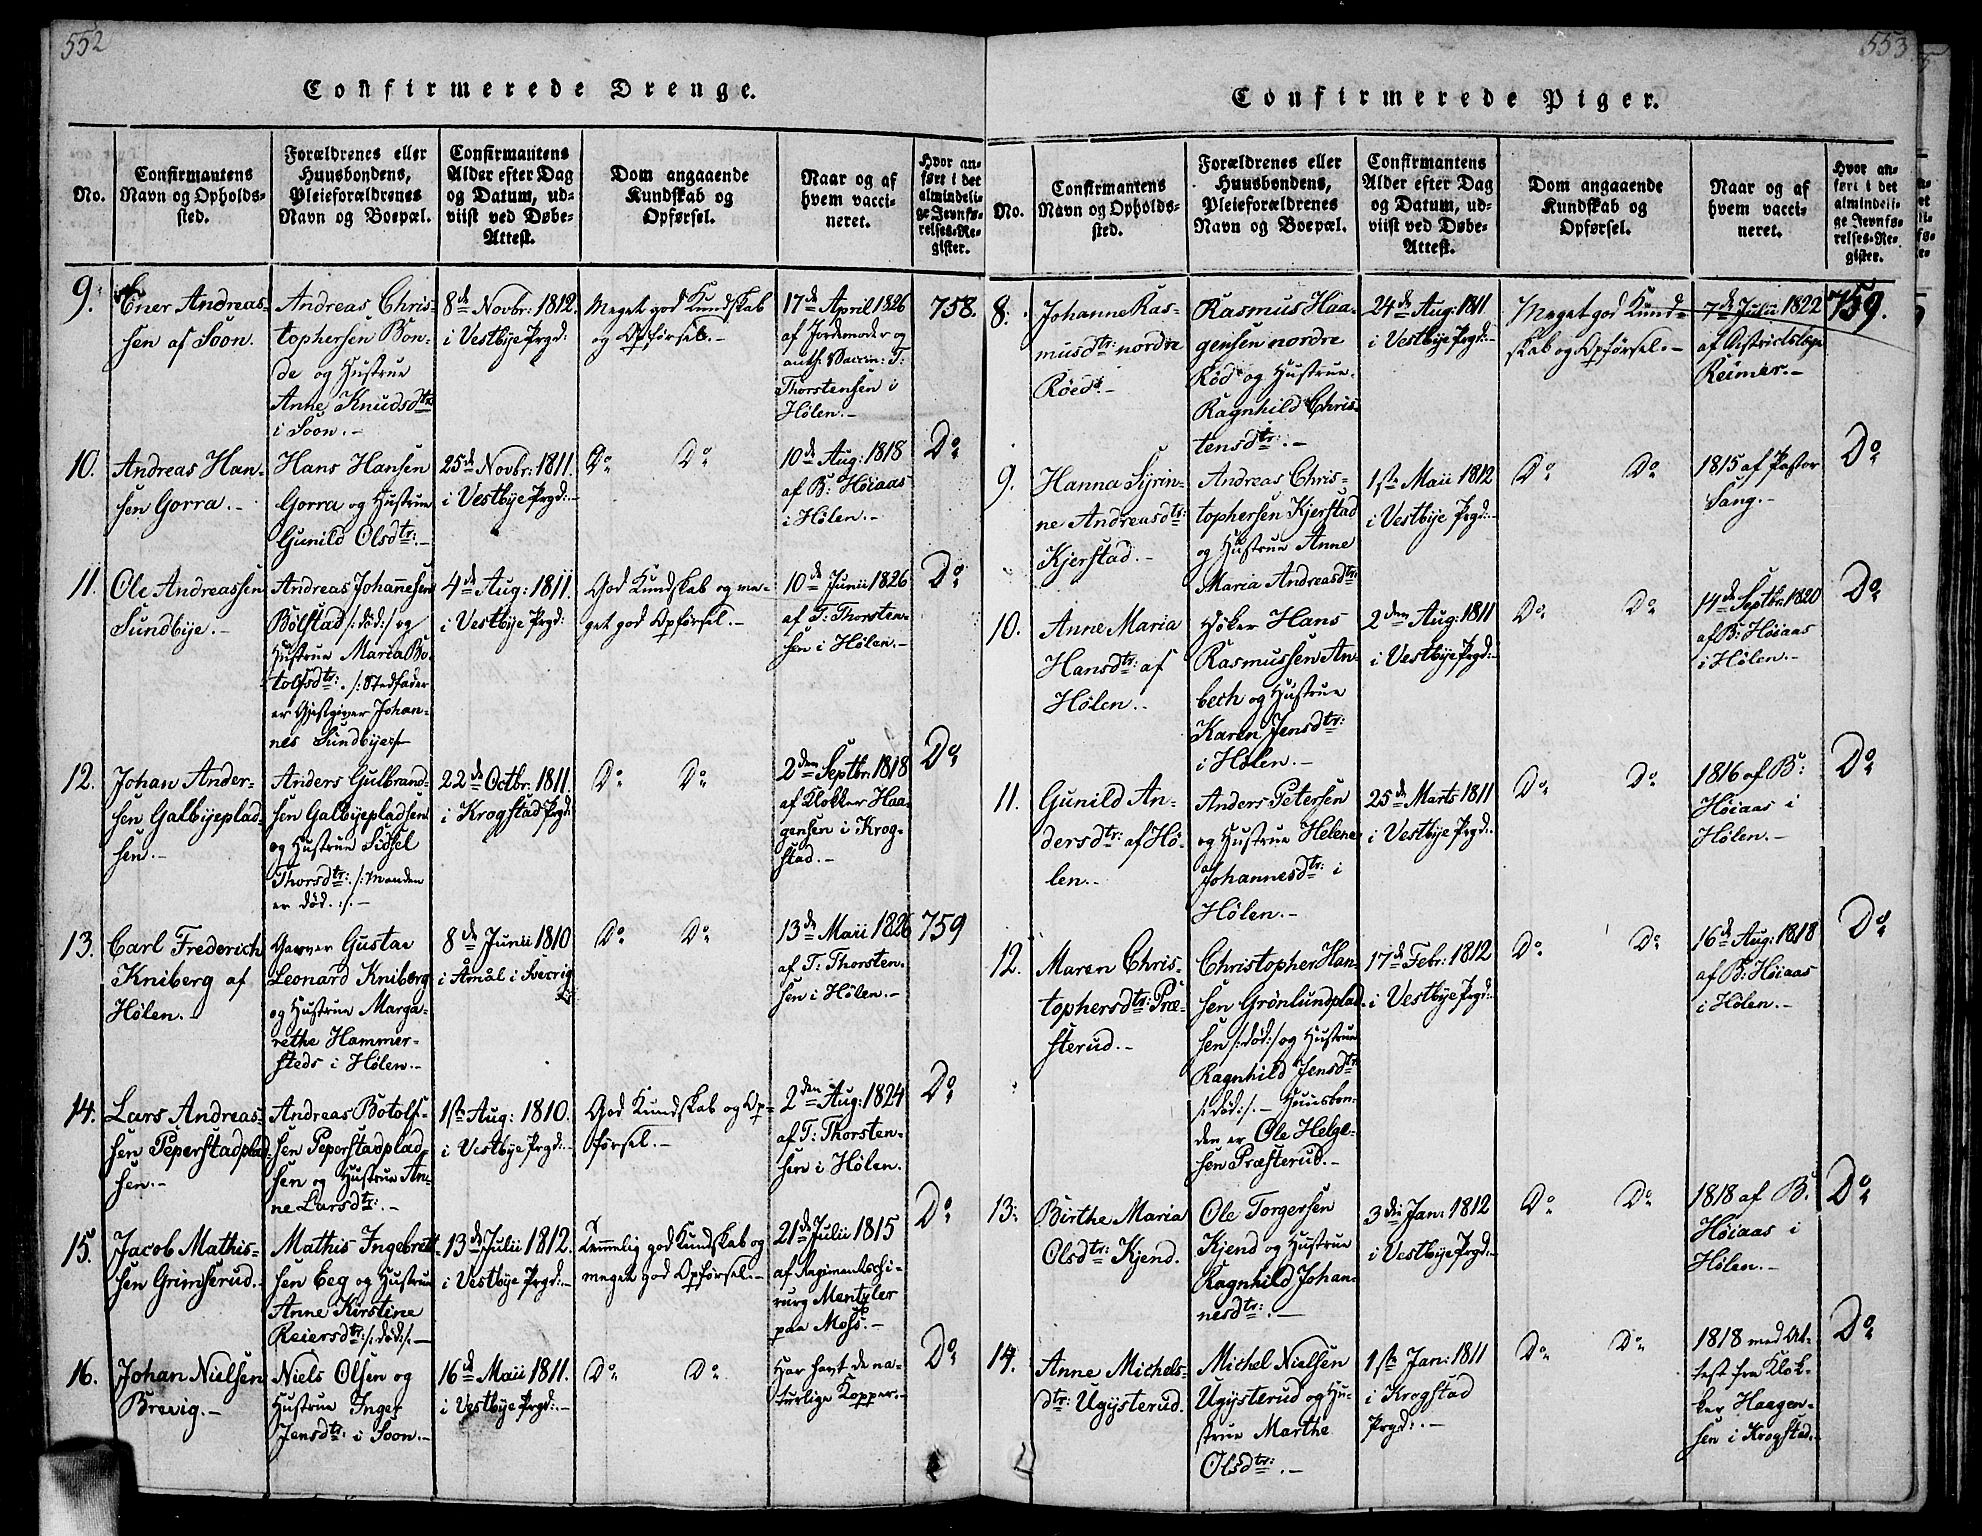 552
Confirmerede Drenge.
No.
Confirmantens
Navn og Opholds-
sted.
Forældrenes eller
Huusbondens,
Pleieforældrenes
Navn og Boepæl.
Confirmantens
Alder efter Dag
og Datum, ud-
viist ved Døbe-
Attest.
Dom angaaende
Kundskab og
Opførsel.
Naar og af
hvem vacci-
neret.
Hvor an-
ført i det
almindeli-
ge Jevnfø-
relses-Re-
gister.
9.
Ener Andreas-
sen af Soon.
Andreas Chris-
tophersen Bon-
de og Hustrue
Anne Knudsdtr:
i Soon.-
8de Novbr: 1812.
i Vestbye Prgd:
Meget god Kundskab
og Opførsel.-
17de April 1826
af Jordemoder og
auth. Vaccin: T:
Thorstensen i
Hølen.-
758.
10.
Andreas Han-
sen Gorra.-
Hans Hansen
Gorra og Hustrue
Gunild Olsdtr:.-
25de Novbr: 1811.
i Vestbye Prgd:.-
Do Do
10de Aug: 1818
af B: Høiaas
i Hølen.-
Do
11.
Ole Andreassen
Sundbye.-
Andreas Johannesen
Bølstad /:død:/ og
Hustrue Maria Bo-
tolfsdtr:. /:Stedfader
er Gjestgiver Johan-
nes Sundbye:/-
4de Aug: 1811.
i Vestbye Prgd:
God Kundskab og me-
get god Opførsel.-
10de Junii 1826
af T: Thorsten-
sen i Hølen.-
Do
12.
Johan Ander-
sen Galbyeplad-
sen.-
Anders Gulbrand-
sen Galbyepladsen
og Hustrue Sidsel
Thorsdtr:. /:Manden
er død.:/.-
22de Octbr: 1811.
i Krogstad Prgd:
Do Do
2den Septbr: 1818
af Klokker Haa-
gensen i Krog-
stad.-
Do
13.
Carl Frederich
Kniberg af
Hølen.
Garver Gustav
Leonard Kniberg
og Hustrue Marga-
rethe Hammer-
steds i Hølen.-
8de Junii 1810
i Åmål i Sverrig
Do Do
13de Maii 1826
af T: Thorsten-
sen i Hølen.-
759
14.
Lars Andreas-
sen Peperstadplad-
sen.-
Andreas Botolf-
sen Peperstadplad-
sen og Hustrue An-
ne Larsdtr:.-
1ste Aug: 1810.
i Vestbye Prgd:.-
God Kundskab og Op-
førsel.-
2den Aug: 1824
af T: Thorsten-
sen i Hølen.
Do
15.
Jacob Mathis-
sen Grimserud.-
Mathis Ingebrett-
sen Eeg og Hustrue
Anne Kirstine
Reiersdtr: /:død:/.-
13de Julii 1812.
i Vestbye Prgd:.-
Temmelig god Kundskab og
meget god Opførsel.-
21de Julii 1815
af Regimentschi-
rurg Mentzler
paa Moss.-
Do
16.
Johan Nielsen
Brevig.-
Niels Olsen og
Hustrue Inger
Jensdtr: i Soon.-
16de Maii 1811.
i Vestbye Prgd:.-
Do Do.
Har havt de na-
turlige Kopper.-
Do
553
Confirmerede Piger.
No.
Confirmantens
Navn og Opholds-
sted.
Forældrenes eller
Huusbondens,
Pleieforældrenes
Navn og Boepæl.
Confirmantens
Alder efter Dag
og Datum, ud-
viist ved Døbe-
Attest.
Dom angaaende
Kundskab og
Opførsel.
Naar og af
hvem vacci-
neret.
Hvor an-
ført i det
almindeli-
ge Jevnfø-
relses-Re-
gister.
8.
Johanne Ras-
musdtr: nordre
Røed.-
Rasmus Haa-
gensen nordre
Rød og Hustrue
Ragnhild Chris-
tensdtr:.-
24de Aug: 1811
i Vestbye Prgd:.-
Meget god Kund-
skab og Opførsel.-
7de Julii 1822
af Districtslæge
Reimer.-
759.
9.
Hanna Syrin-
ne Andreasdtr:
Kjerstad.-
Andreas Chris-
tophersen Kjerstad
og Hustrue Anne
Maria Andreasdtr:
1ste Maii 1812
i Vestbye Prgd:.-
Do Do
1815 af Pastor
Sang.-
Do
10.
Anne Maria
Hansdtr: af
Hølen.-
Høker Hans
Rasmussen An-
bech og Hustrue
Karen Jensdtr:
i Hølen.-
2den Aug: 1811
i Vestbye Prgd:.-
Do Do
14de Septbr: 1820
af B: Høiaas
i Hølen.-
Do
11.
Gunild An-
dersdtr: af Hø-
len.-
Anders Petersen
og Hustrue Helene
Johannesdtr: i
Hølen.-
25de Marts 1811
i Vestbye Prgd:.
Do Do
1816 af B:
Høiaas i
Hølen.-
Do
12.
Maren Chris-
tophersdtr: Præ-
sterud.-
Christopher Han-
sen Grønlundplad-
sen /:død:/ og Hustrue
Ragnhild Jensdtr:
/:død:/.- Huusbon-
den er Ole Helge-
sen Præsterud.-
17de Febr: 1812
i Vestbye Prgd:.-
Do Do
16de Aug: 1818
af B: Høiaas
i Hølen.-
Do
13.
Birthe Maria
Olsdtr: Kjend.
Ole Torgersen
Kjend og Hustrue
Ragnhild Johan-
nesdtr:.-
3die Jan: 1812
i Vestbye Prgd:.-
Do Do
1818 af B.
Høiaas i
Hølen.-
Do
14.
Anne Michels-
dtr: Ugysterud.
Michel Nielsen
Ugysterud og Hu-
strue Marthe
Olsdtr:.-
1ste Jan: 1811
i Krogstad
Prgd:.-
Do Do
1818 med At-
test fra Klok-
ker Haagen-
sen i Krogstad.-
Do